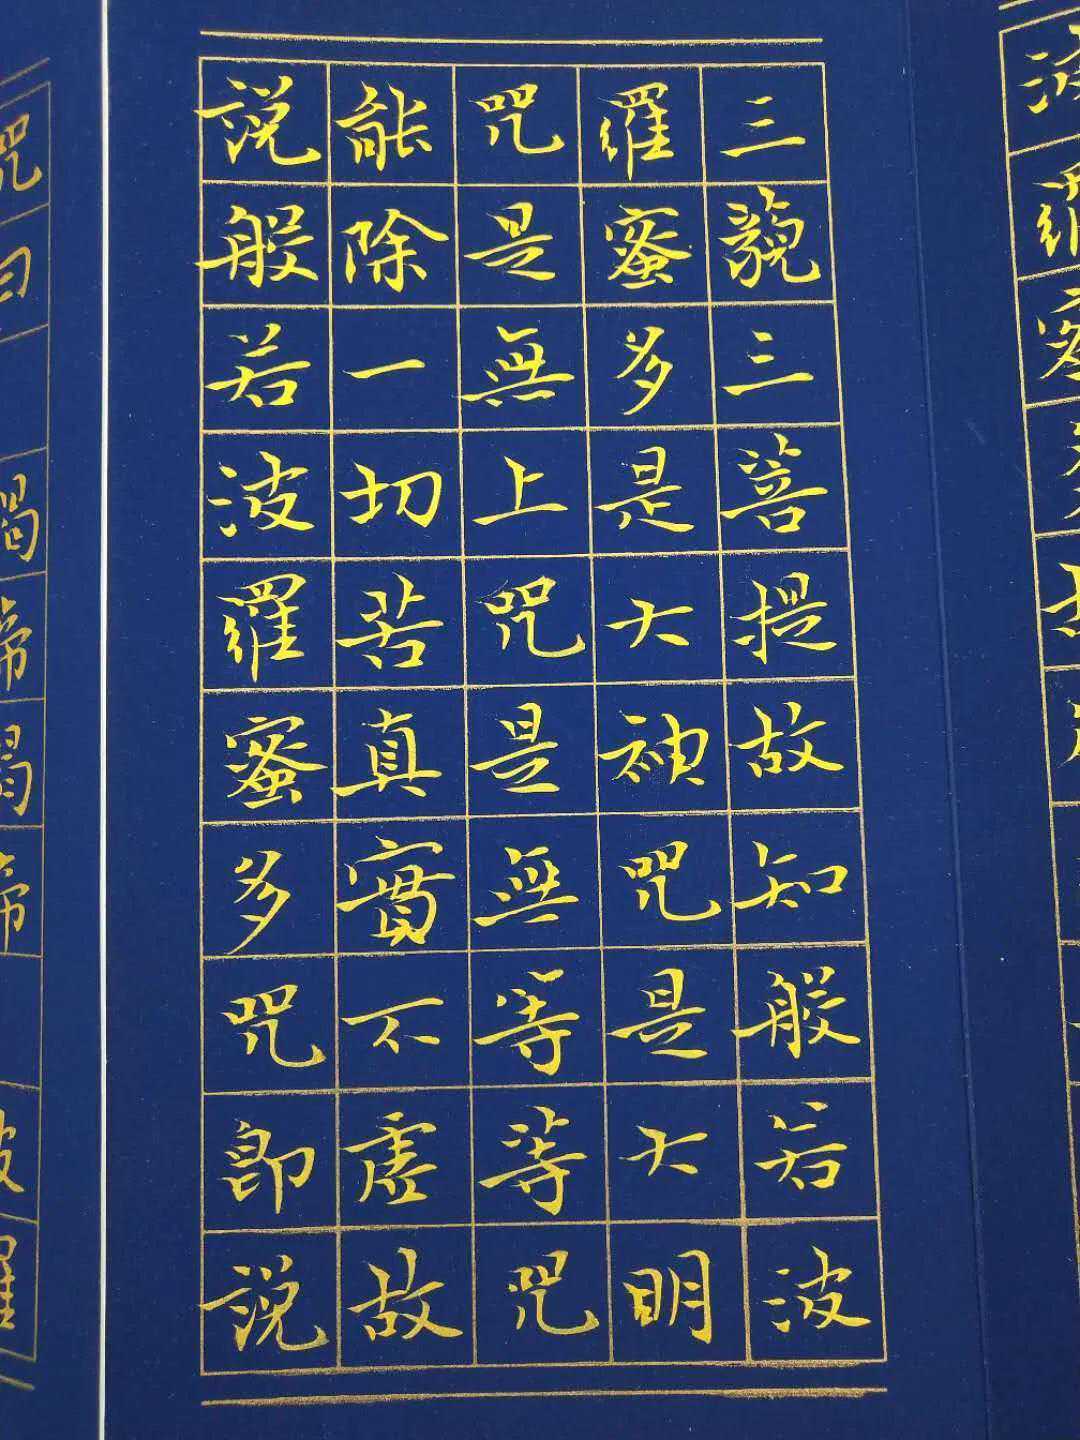 波羅蜜
三藐三菩提故知般若波
羅蜜多是大神咒是大明
咒是無上咒是無等等咒
能除一切苦真實不虛故
說般若波羅蜜多咒即說
咒曰